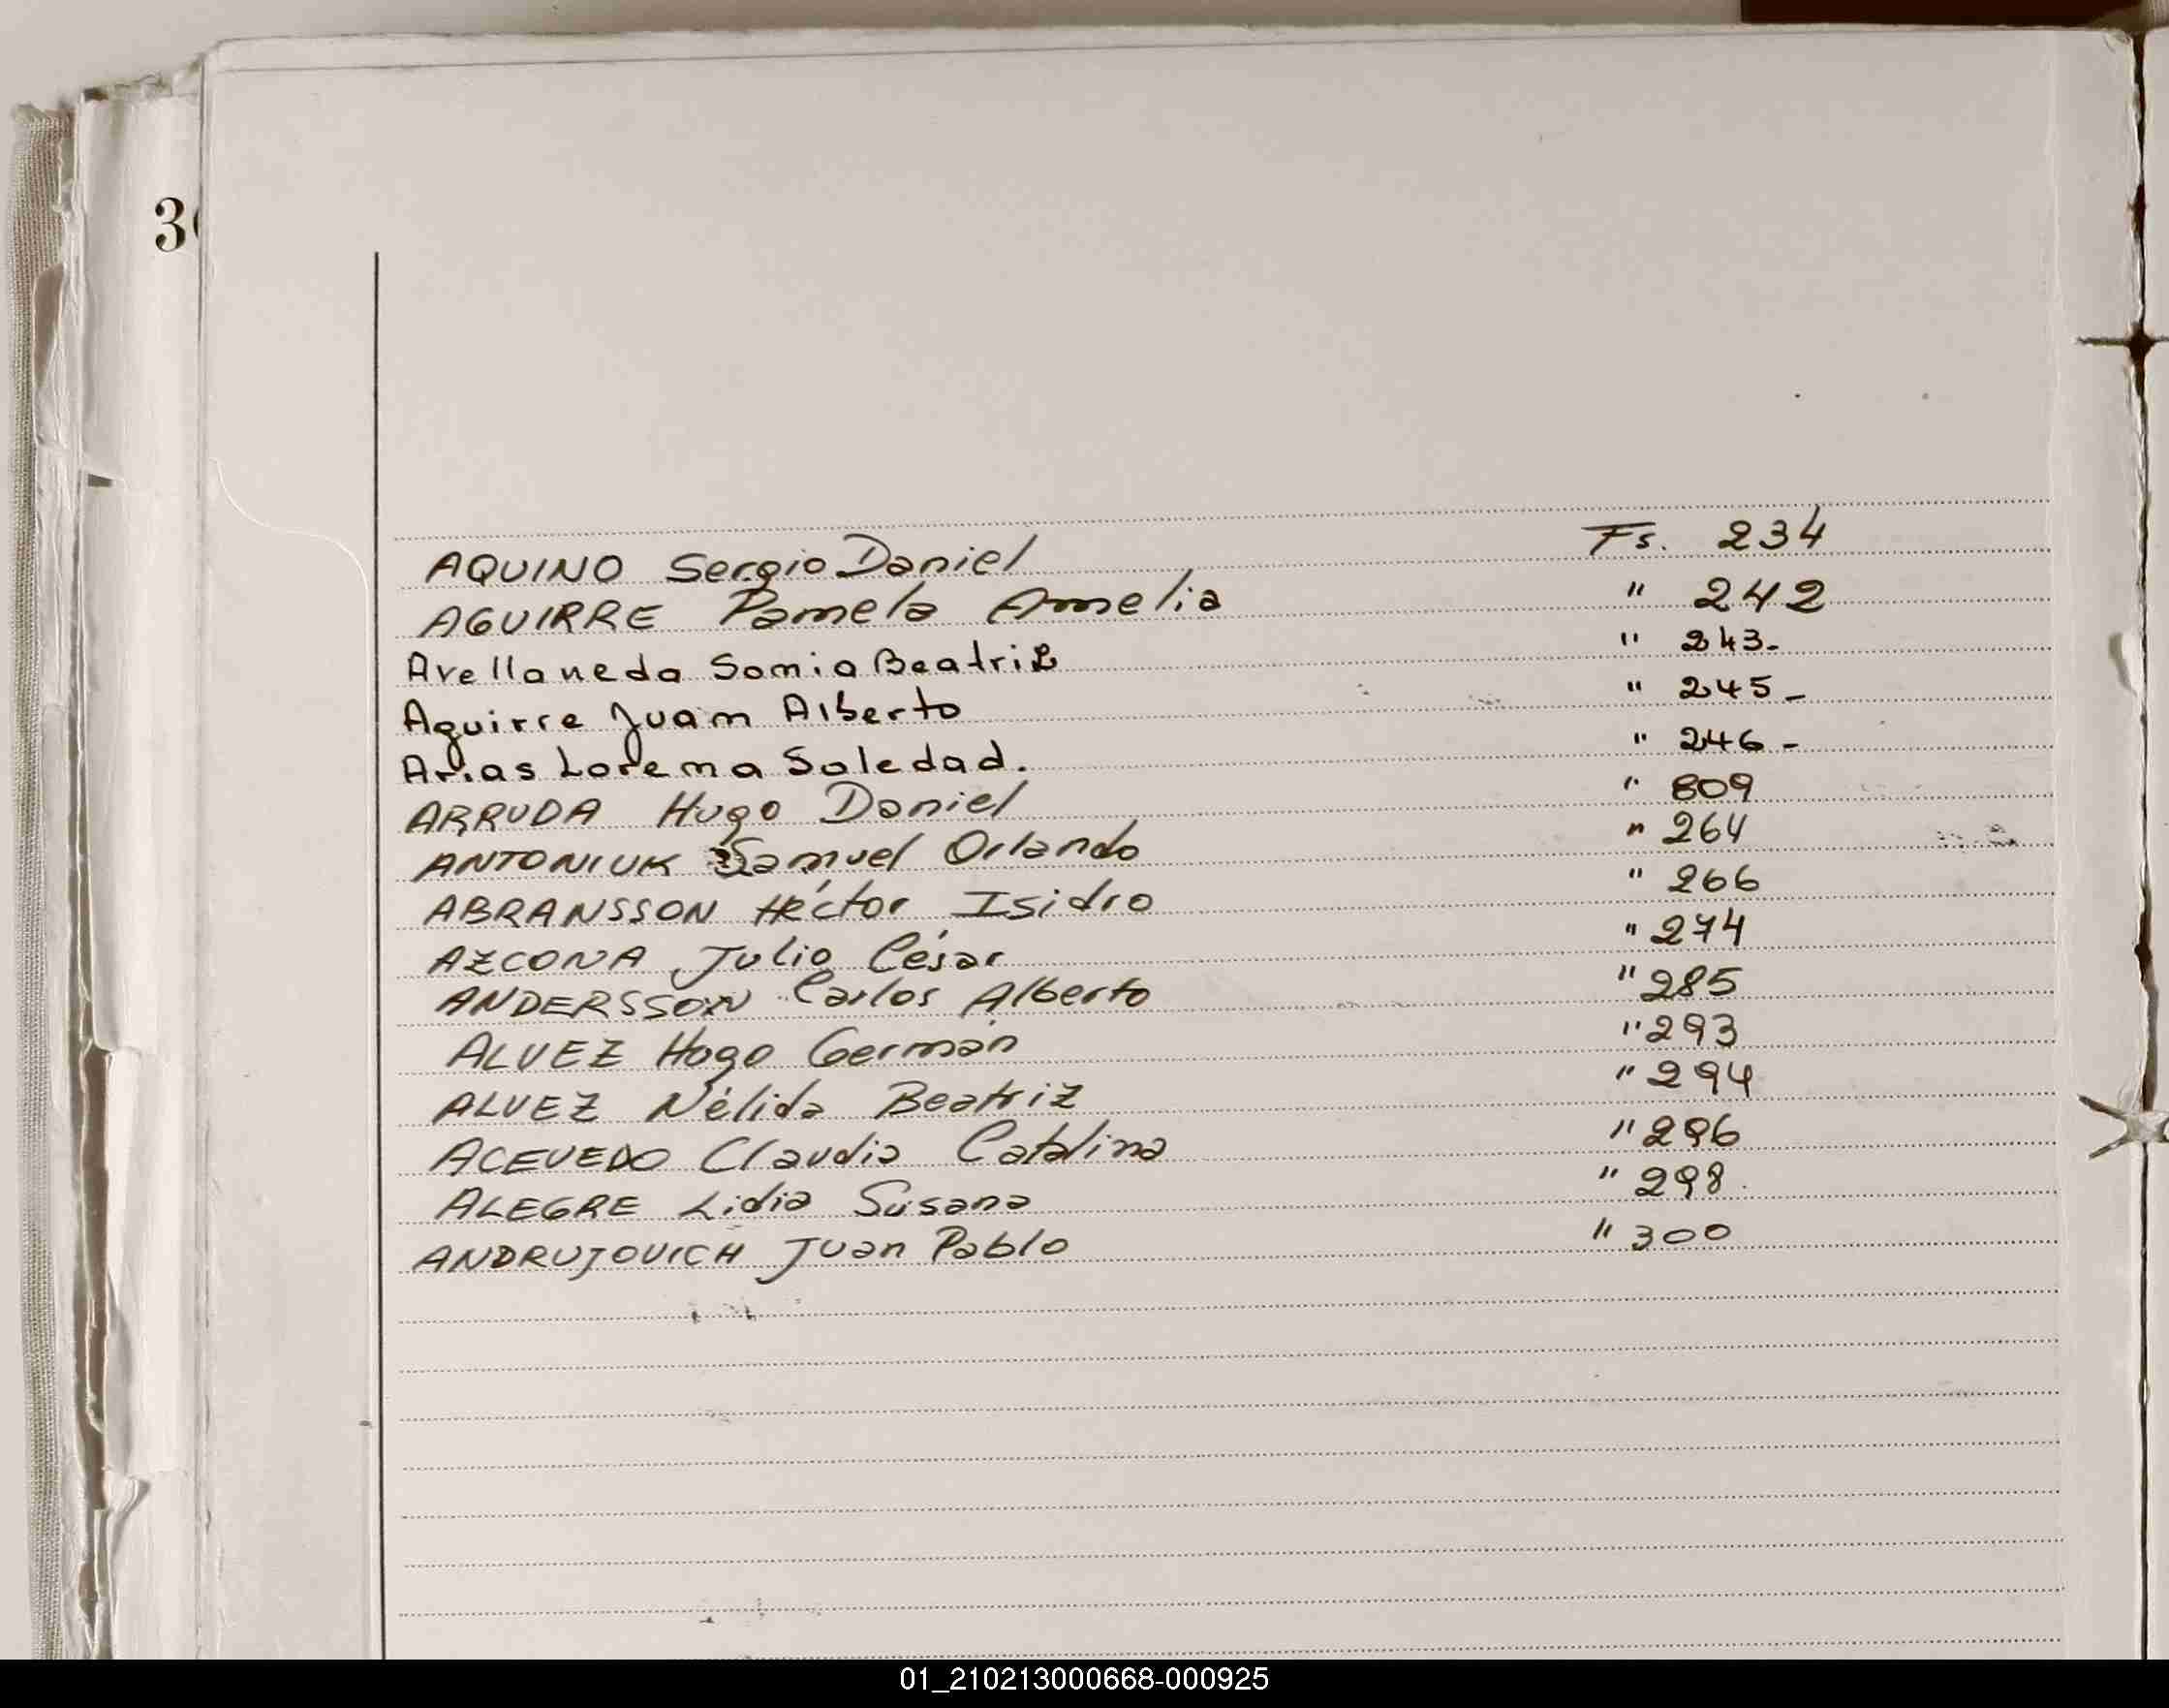 3
AQUINO Sergio Daniel Fs. 234
AGUIRRE Pamela Amelia " 242
Avellaneda Sonia Beatriz " 243-
Aguirre Juan Alberto " 245-
Arias Lorena Soledad. " 246-
ARRUDA Hugo Daniel " 809
ANTONIUK Samuel Orlando " 264
ABRANSSON Héctor Isidro " 266
AZCONA Julio César " 274
ANDERSSON Carlos Alberto " 285
ALVEZ Hugo Germán " 293
ALVEZ Nélida Beatriz " 294
ACEVEDO Claudia Catalina " 296
ALEGRE Lidia Susana " 298
ANDRUJOVICH Juan Pablo " 300
01_210213000668-000925